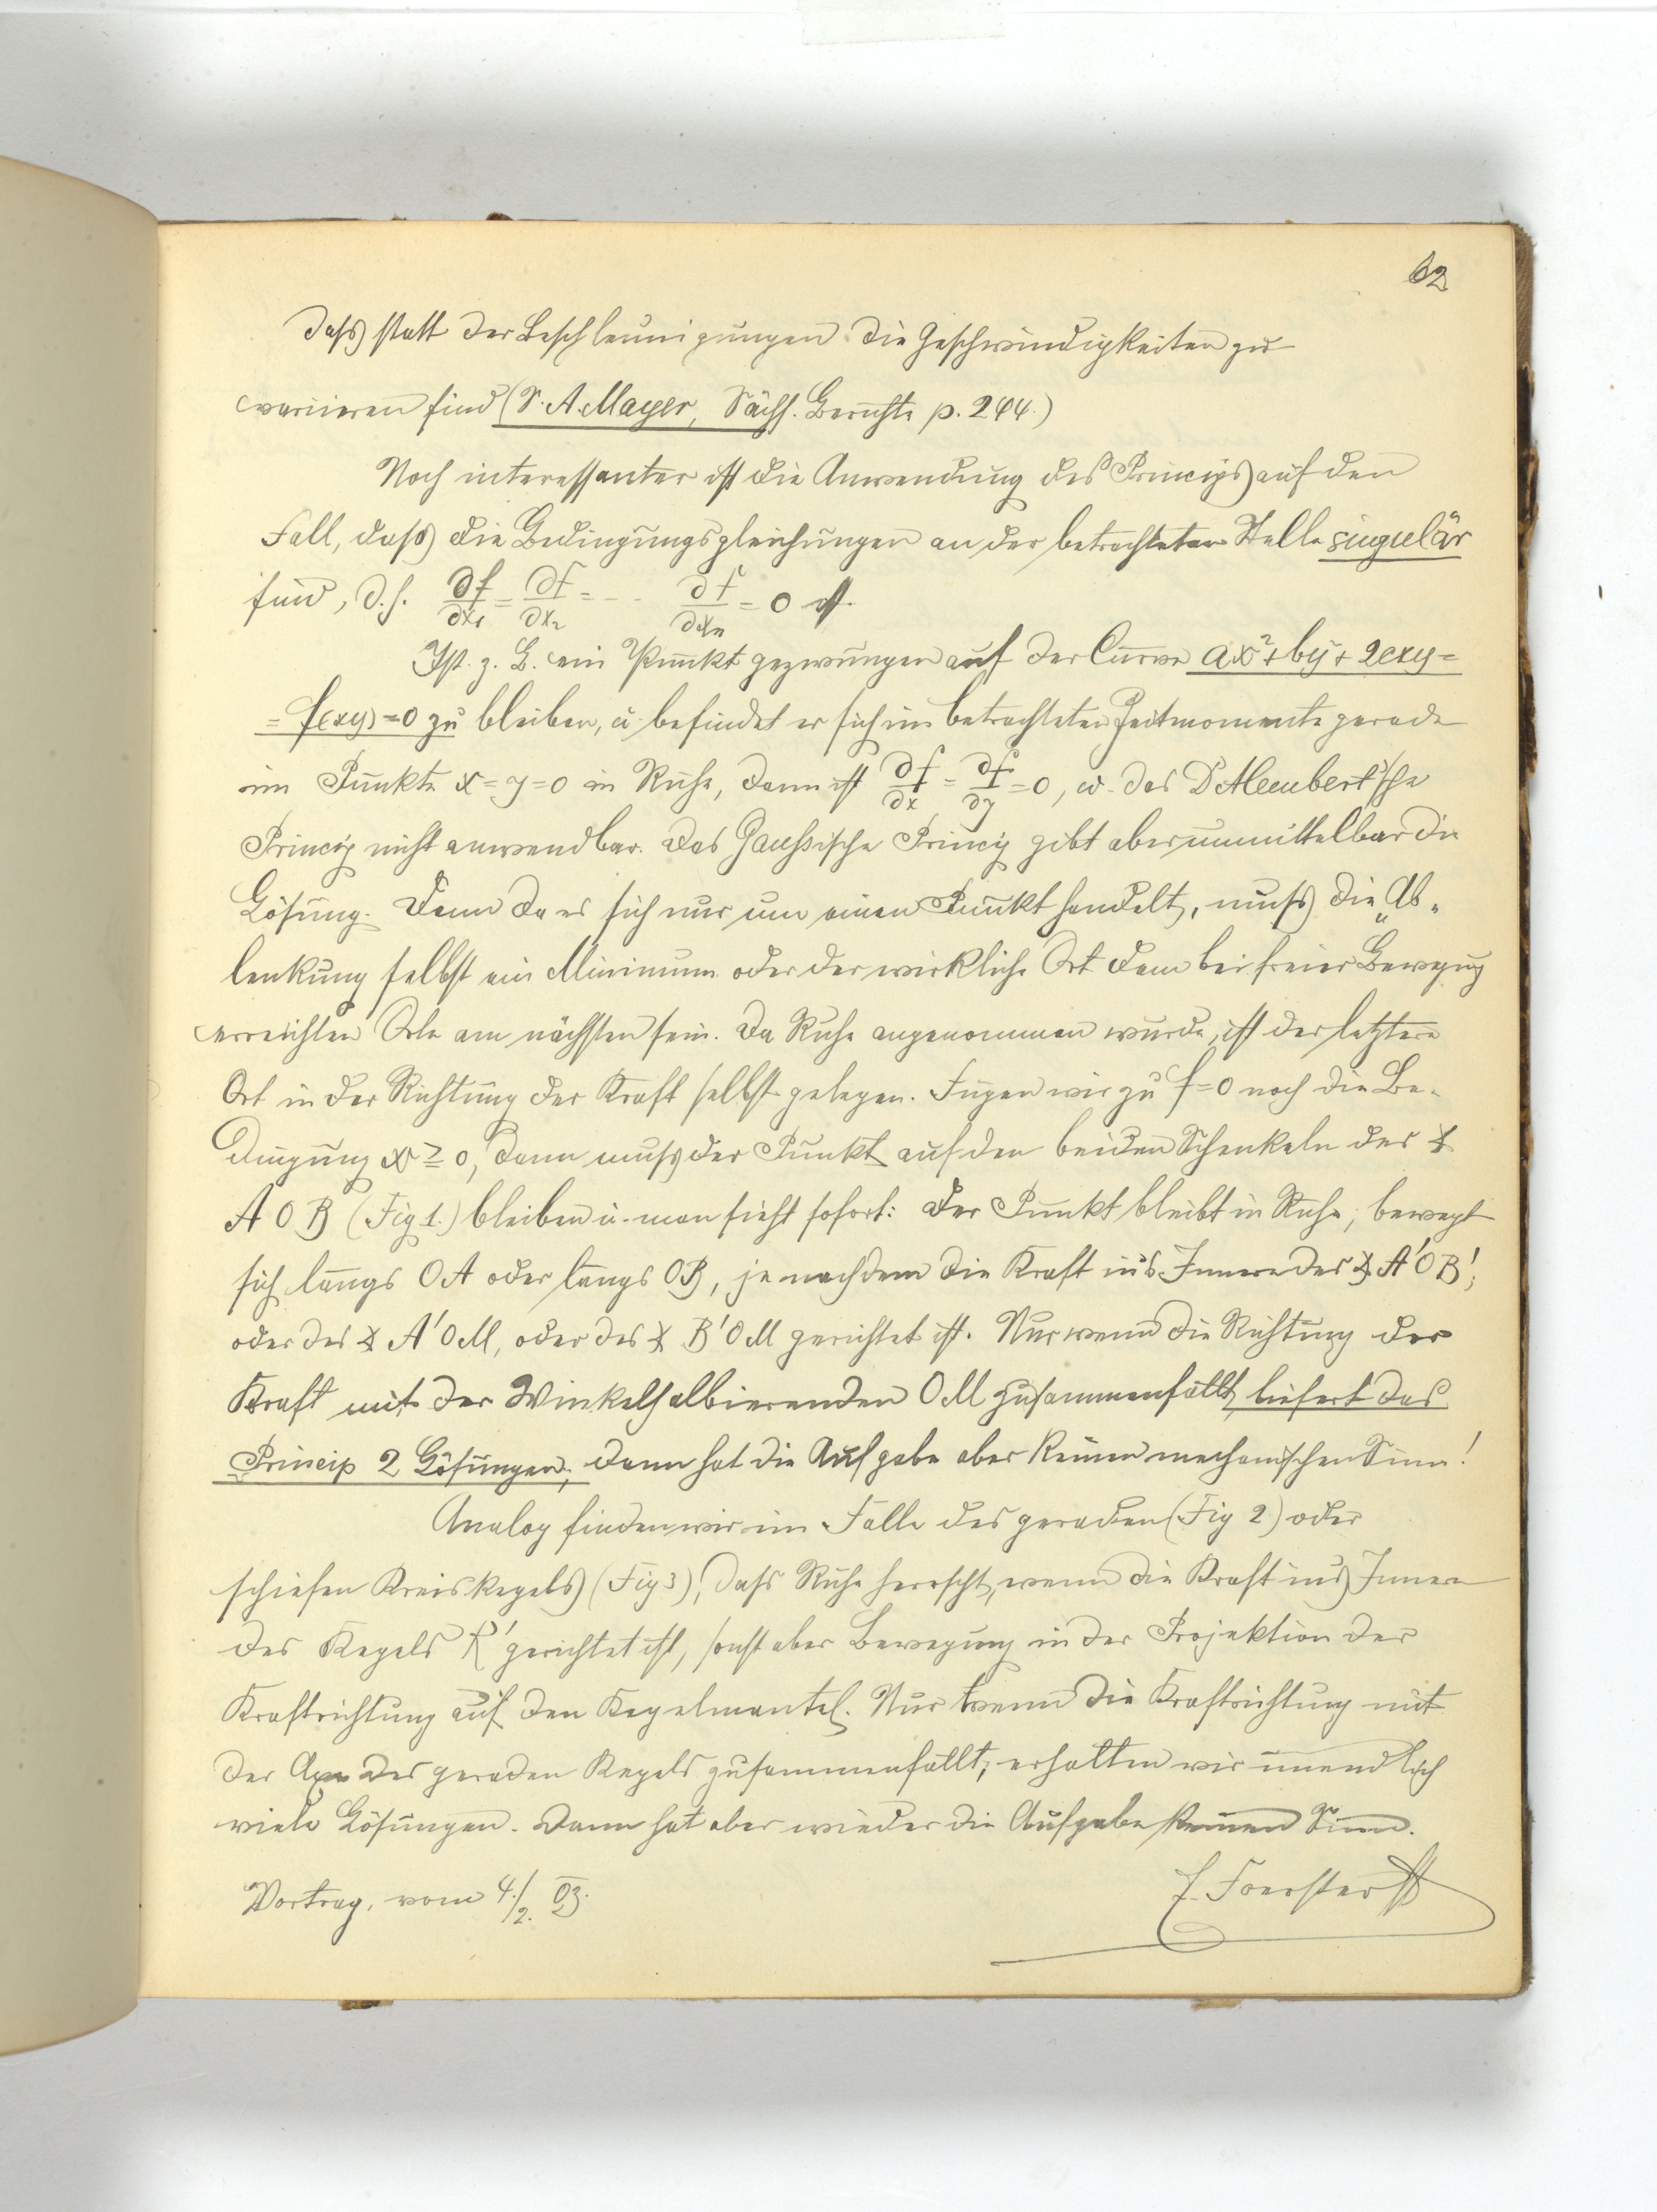 62
dass statt der Beschleunigungen die Geschwindigkeiten zu
variieren sind (S. A. Mayer, Sächs. Berichte p. 244.)
Noch interessanter ist die Anwendung des Princips auf den
Fall, dass die Bedingungsgleichungen an der betrachteten Stelle singulär
sind, d.h. ∂f/∂x₁ = ∂f/∂x₂ = - - ∂f/∂xₙ = 0 ist.
Ist z. B. ein Punkt gezwungen auf der Curve ax²+by²+2cxy=
= f(xy)=0 zu bleiben, u. befindet er sich im betrachteten Zeitmomente gerade
im Punkte x=y=0 in Ruhe, dann ist ∂f/∂x = ∂f/∂y = 0, u. das D'Alembert'sche
Princip nicht anwendbar. Das Gaussische Princip gibt aber unmittelbar die
Lösung. Denn da es sich nur um einen Punkt handelt, muss die „Ab-
lenkung selbst ein Minimum oder der wirkliche Ort dem bei freier Bewegung
erreichten Orte am nächsten sein. Da Ruhe angenommen wurde, ist der letztere
Ort in der Richtung der Kraft selbst gelegen. Fügen wir zu f=0 noch die Be-
dingung x ≥ 0, dann muss der Punkt auf den beiden Schenkeln des ∡
A O B (Fig 1.) bleiben u. man sieht sofort: Der Punkt bleibt in Ruhe, bewegt
sich längs OA oder längs OB, je nachdem die Kraft ins Innere des ∡ A'OB';
oder des ∡ A'OM, oder des ∡ B'OM gerichtet ist. Nur wenn die Richtung der
Kraft mit der Winkelhalbierenden OM zusammenfällt, liefert das
Princip 2 Lösungen; dann hat die Aufgabe aber keinen mechanischen Sinn!
Analog finden wir im Falle des geraden (Fig 2) oder
schiefen Kreiskegels (Fig 3), dass Ruhe herrscht, wenn die Kraft ins Innere
des Kegels K' gerichtet ist, sonst aber Bewegung in der Projektion der
Kraftrichtung auf den Kegelmantel. Nur wenn die Kraftrichtung mit
der Axe des geraden Kegels zusammenfällt, erhalten wir unendlich
viele Lösungen. Dann hat aber wieder die Aufgabe keinen Sinn.
Vortrag. vom 4./2. 03. E. Foerster